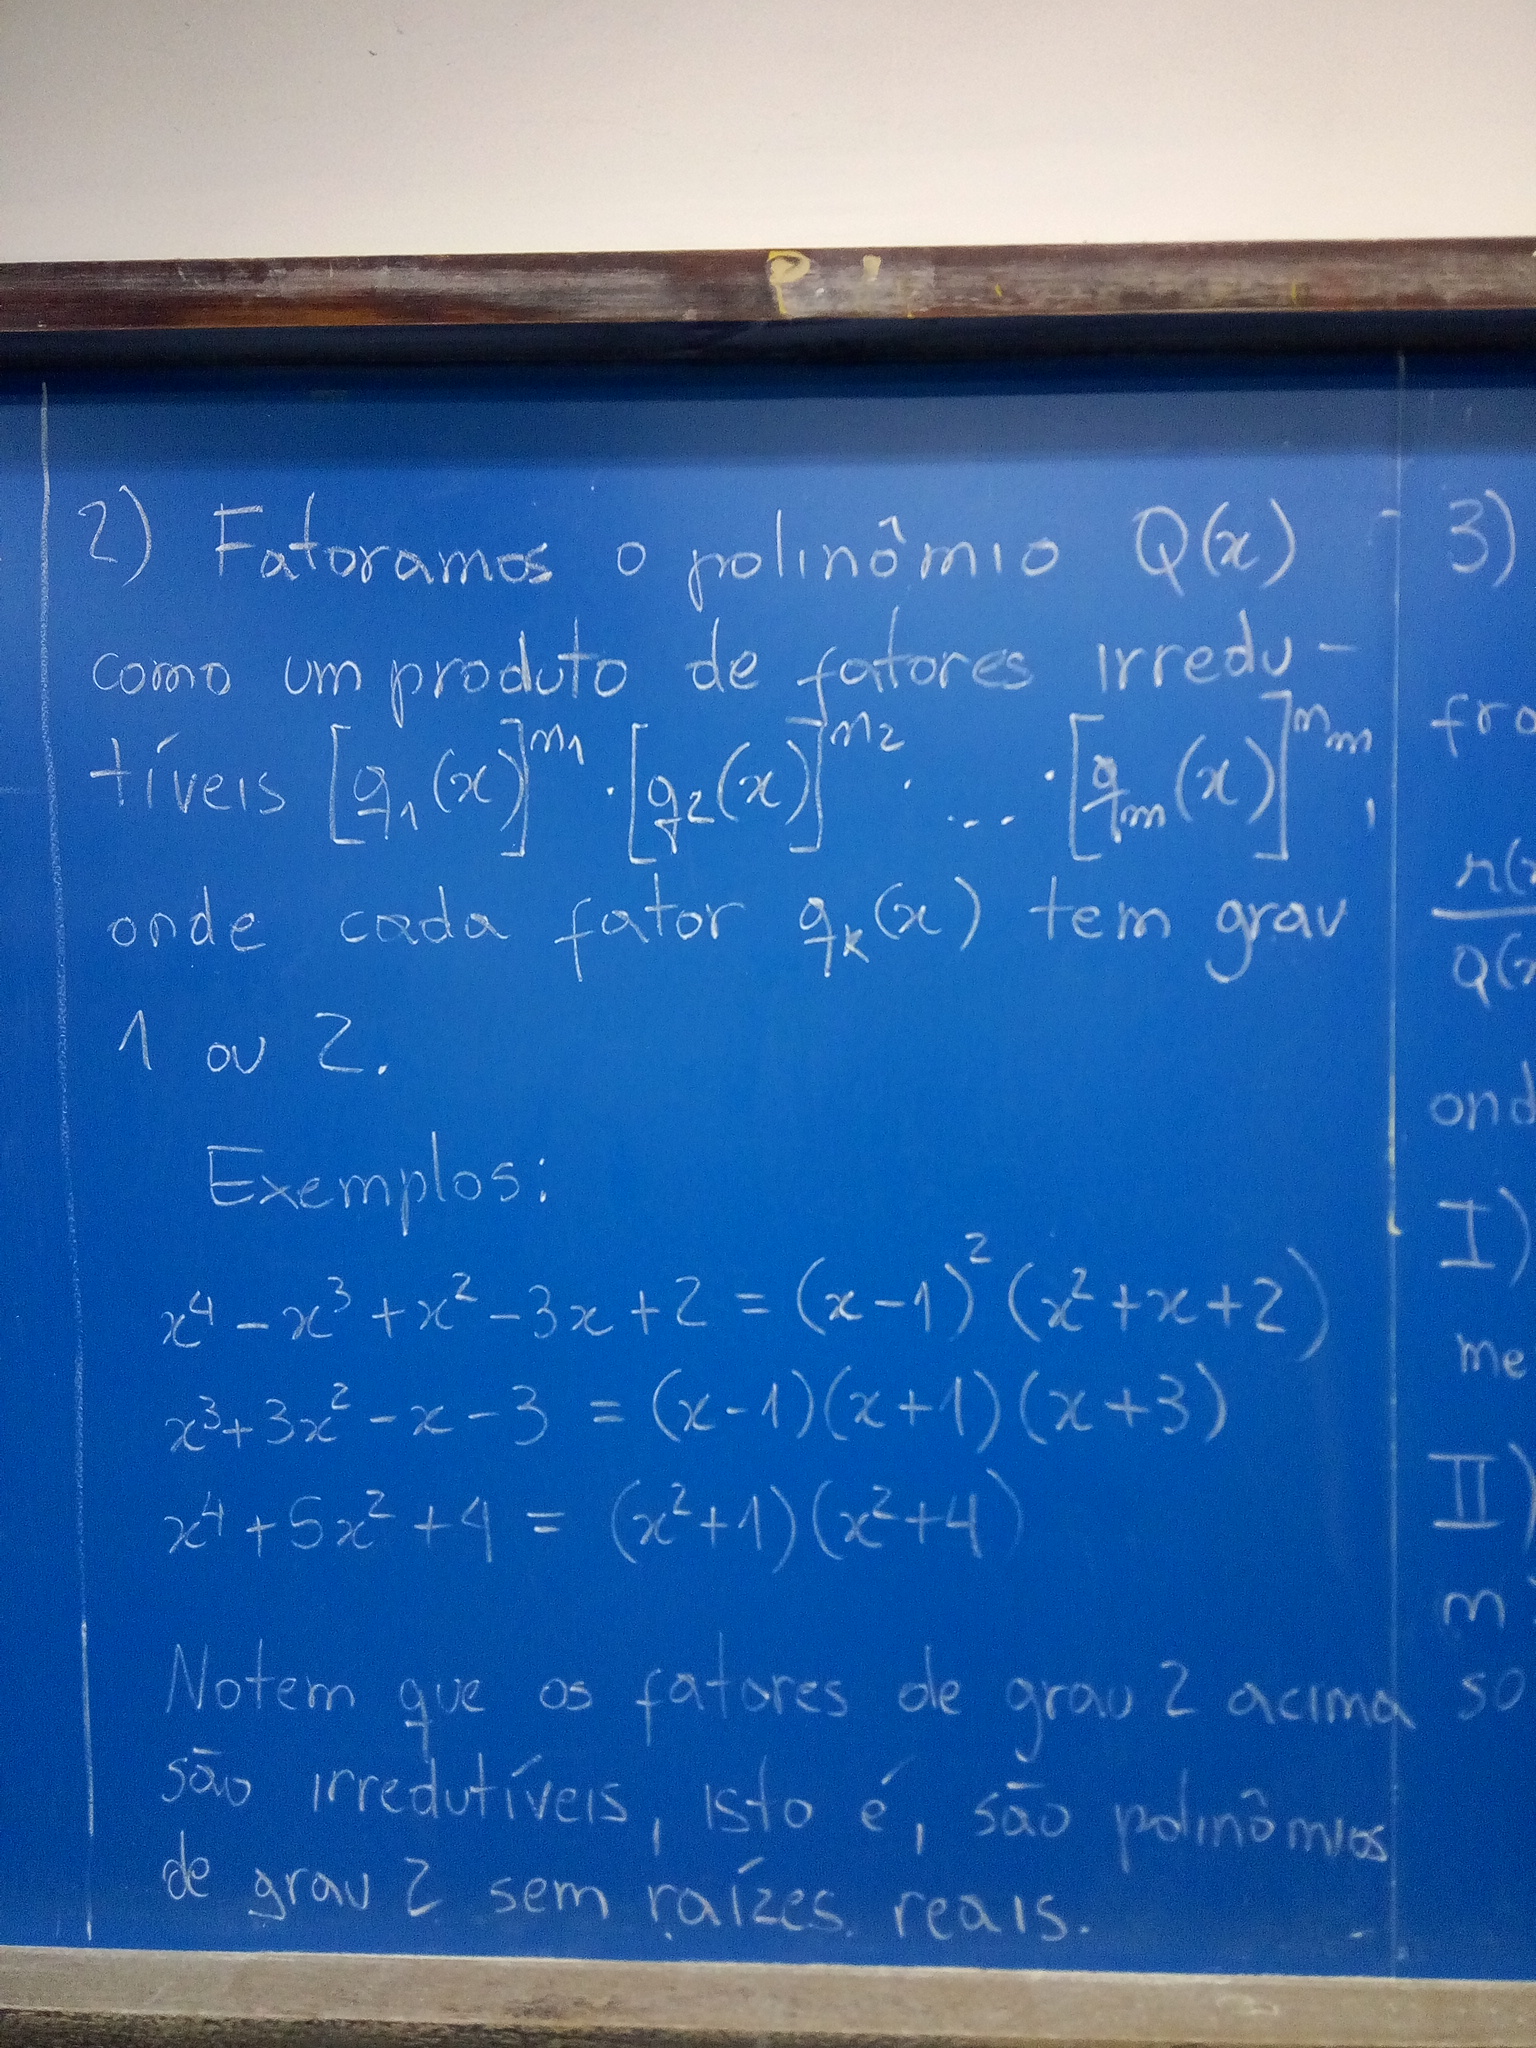 2) Fatoramos o polinômio Q(x)
como um produto de fatores irredu-
tíveis [q₁(x)]^n₁ · [q₂(x)]^n₂ · ... · [qₘ(x)]^nₘ,
onde cada fator qₖ(x) tem grau
1 ou 2.
Exemplos:
x⁴ - x³ + x² - 3x + 2 = (x-1)² (x² + x + 2)
x³ + 3x² - x - 3 = (x-1)(x+1)(x+3)
x⁴ + 5x² + 4 = (x²+1)(x²+4)
Notem que os fatores de grau 2 acima
são irredutíveis, isto é, são polinômios
de grau 2 sem raízes reais.
3)
I)
II)